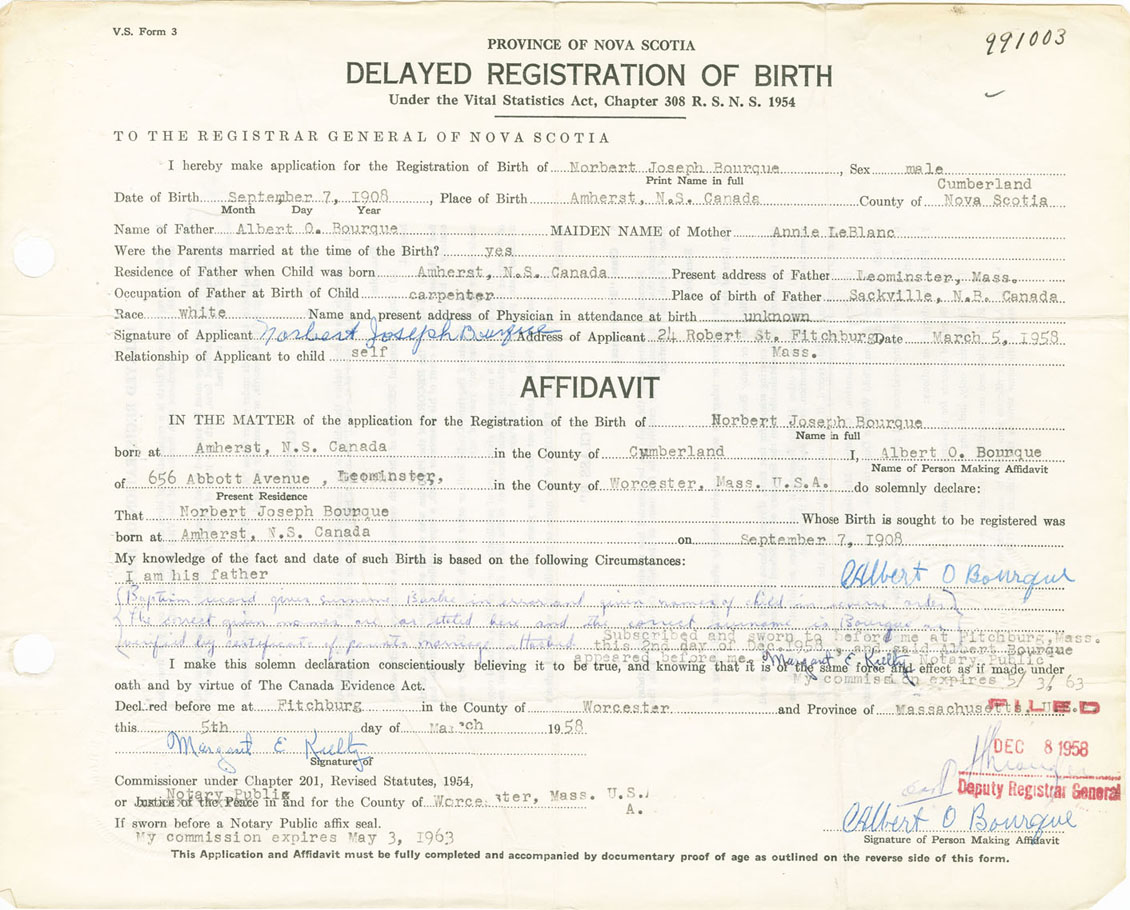 V.S. Form 3
991003
PROVINCE OF NOVA SCOTIA
DELAYED REGISTRATION OF BIRTH
Under the Vital Statistics Act, Chapter 308 R. S. N. S. 1954
TO THE REGISTRAR GENERAL OF NOVA SCOTIA
I hereby make application for the Registration of Birth of Norbert Joseph Bourque, Sex male
Print Name in full
Cumberland
Date of Birth September 7, 1908, Place of Birth Amherst, N.S. Canada County of Nova Scotia
Month Day Year
Name of Father Albert O. Bourque MAIDEN NAME of Mother Annie LeBlanc
Were the Parents married at the time of the Birth? yes
Residence of Father when Child was born Amherst, N.S. Canada Present address of Father Leominster, Mass.
Occupation of Father at Birth of Child carpenter Place of birth of Father Sackville, N.B. Canada
Race white Name and present address of Physician in attendance at birth unknown
Signature of Applicant Norbert Joseph Bourque Address of Applicant 24 Robert St. Fitchburg, Date March 5, 1958
Mass.
Relationship of Applicant to child self
AFFIDAVIT
IN THE MATTER of the application for the Registration of the Birth of Norbert Joseph Bourque
Name in full
born at Amherst, N.S. Canada in the County of Cumberland I, Albert O. Bourque
Name of Person Making Affidavit
of 656 Abbott Avenue, Leominster, in the County of Worcester, Mass. U.S.A. do solemnly declare:
Present Residence
That Norbert Joseph Bourque Whose Birth is sought to be registered was
born at Amherst, N.S. Canada on September 7, 1908
My knowledge of the fact and date of such Birth is based on the following Circumstances:
I am his father
Albert O Bourque
(Baptism record gives surname Burke in error and given names of child in reverse order)
(The correct given names are as stated here and the correct surname is Bourque as
verified by certificate of parents marriage.
Subscribed and sworn to before me at Fitchburg, Mass.
this 2nd day of Dec. 1958, and said Albert Bourque
appeared before me, Margaret E Kielty Notary Public
I make this solemn declaration conscientiously believing it to be true, and knowing that it is of the same force and effect as if made under
My commission expires 5/ 3/ 63
oath and by virtue of The Canada Evidence Act.
Declared before me at Fitchburg in the County of Worcester and Province of Massachusetts,
FILED
this 5th day of March 1958
DEC 8 1958
Margaret E Kielty
Signature of
Deputy Registrar General
Commissioner under Chapter 201, Revised Statutes, 1954,
Notary Public
or Justice of the Peace in and for the County of Worcester, Mass. U.S.
A.
Albert O Bourque
Signature of Person Making Affidavit
If sworn before a Notary Public affix seal.
My commission expires May 3, 1963
This Application and Affidavit must be fully completed and accompanied by documentary proof of age as outlined on the reverse side of this form.